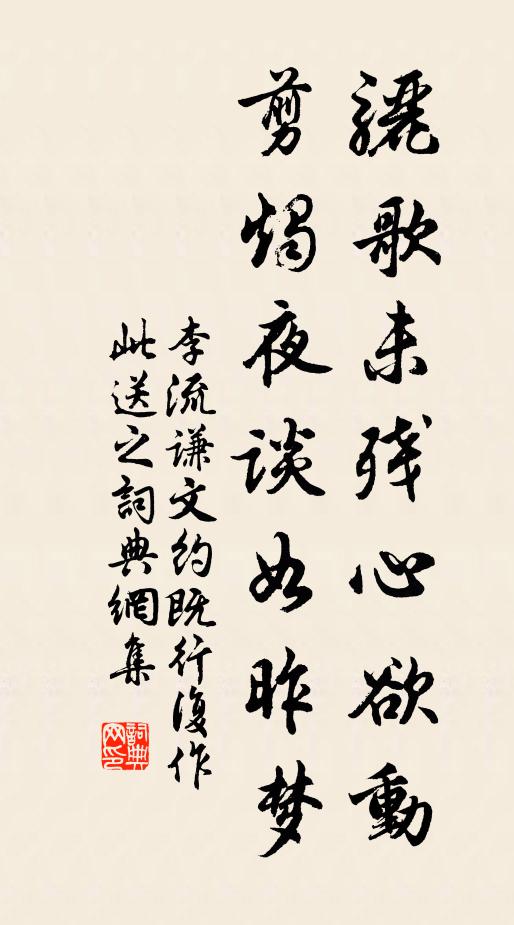 骊歌未残心欲動
剪烛夜谈如昨梦
李流谦文约既行復作
此送之詞典網集
詞典网印